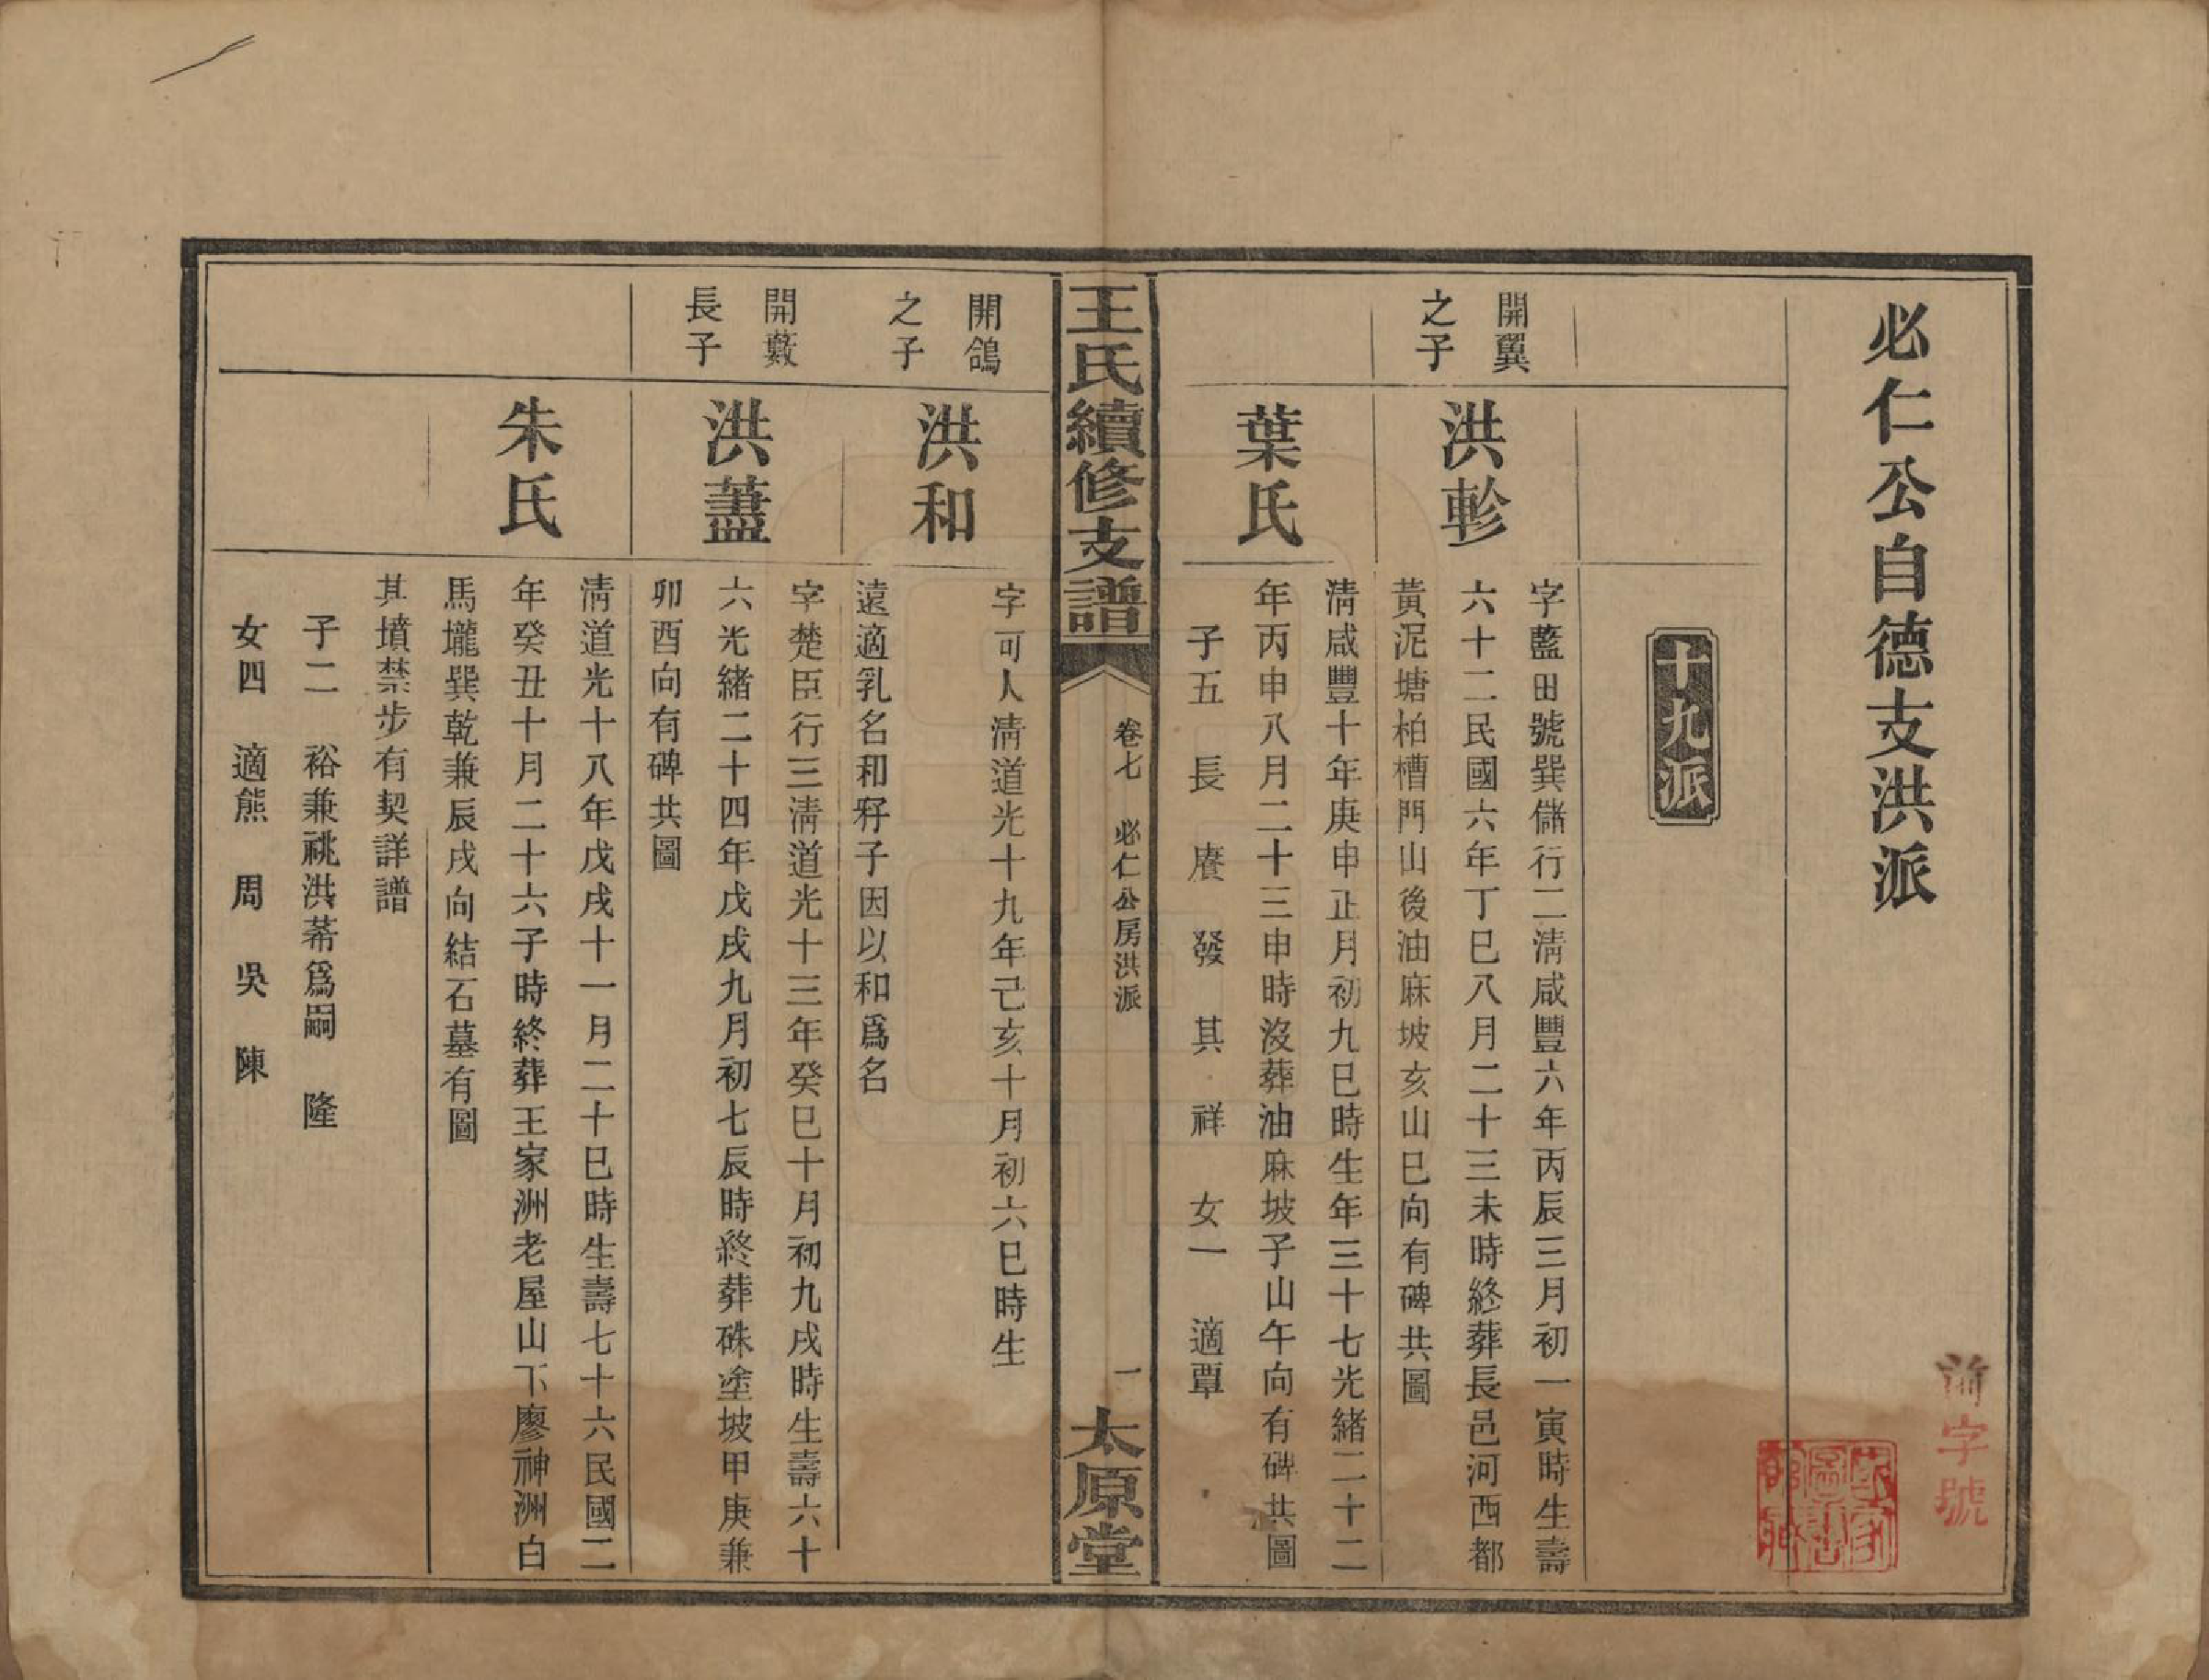 必仁公自德支洪派
十九派
開翼
之子
洪軫
字藍田號巽儲行二清咸豐六年丙辰三月初一寅時生壽
六十二民國六年丁巳八月二十三未時終葬長邑河西都
黃泥塘柏槽門山後油麻坡亥山巳向有碑共圖
葉氏
清咸豐十年庚申正月初九巳時生年三十七光緒二十二
年丙申八月二十三申時沒葬油麻坡子山午向有碑共圖
子五 長 賡 發 其 祥 女一 適覃
王氏續修支譜
卷七 必仁公房洪派
一
太原堂
開鴿
之子
洪和
字可人清道光十九年己亥十月初六巳時生
遠適乳名和籽子因以和爲名
開藪
長子
洪藎
字楚臣行三清道光十三年癸巳十月初九戌時生壽六十
六光緒二十四年戊戌九月初七辰時終葬硃塗坡甲庚兼
卯酉向有碑共圖
朱氏
清道光十八年戊戌十一月二十巳時生壽七十六民國二
年癸丑十月二十六子時終葬王家洲老屋山下廖神洲白
馬壠巽乾兼辰戌向結石墓有圖
其墳禁步有契詳譜
子二 裕兼祧洪芾爲嗣 隆
女四 適熊 周 吳 陳
字號